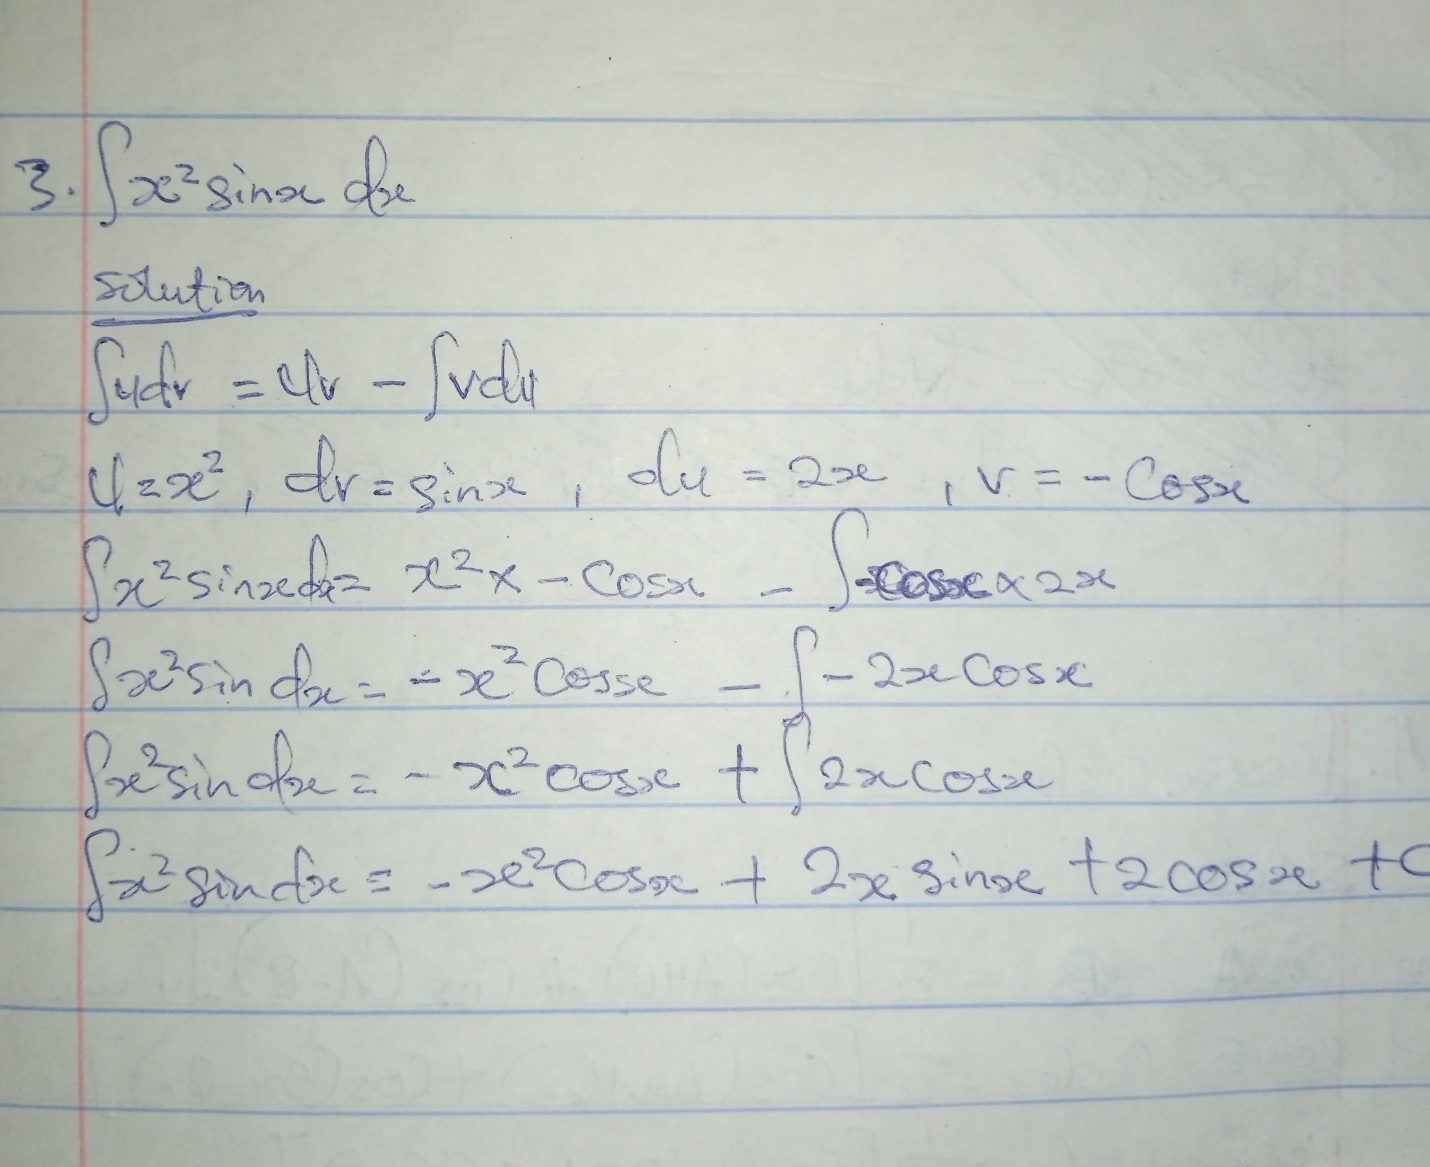 3. ∫x² sinx dx
solution
∫udv = uv - ∫vdu
u=x², dv=sinx, du = 2x, v = - Cosx
∫x² sinx dx = x² x - Cosx - ∫-cosx x 2x
∫x² sin dx = - x² Cosx - ∫- 2x Cosx
∫x² sin dx = - x² cosx + ∫2x Cosx
∫x² sin dx = - x² Cosx + 2x Sinx + 2 cosx + C